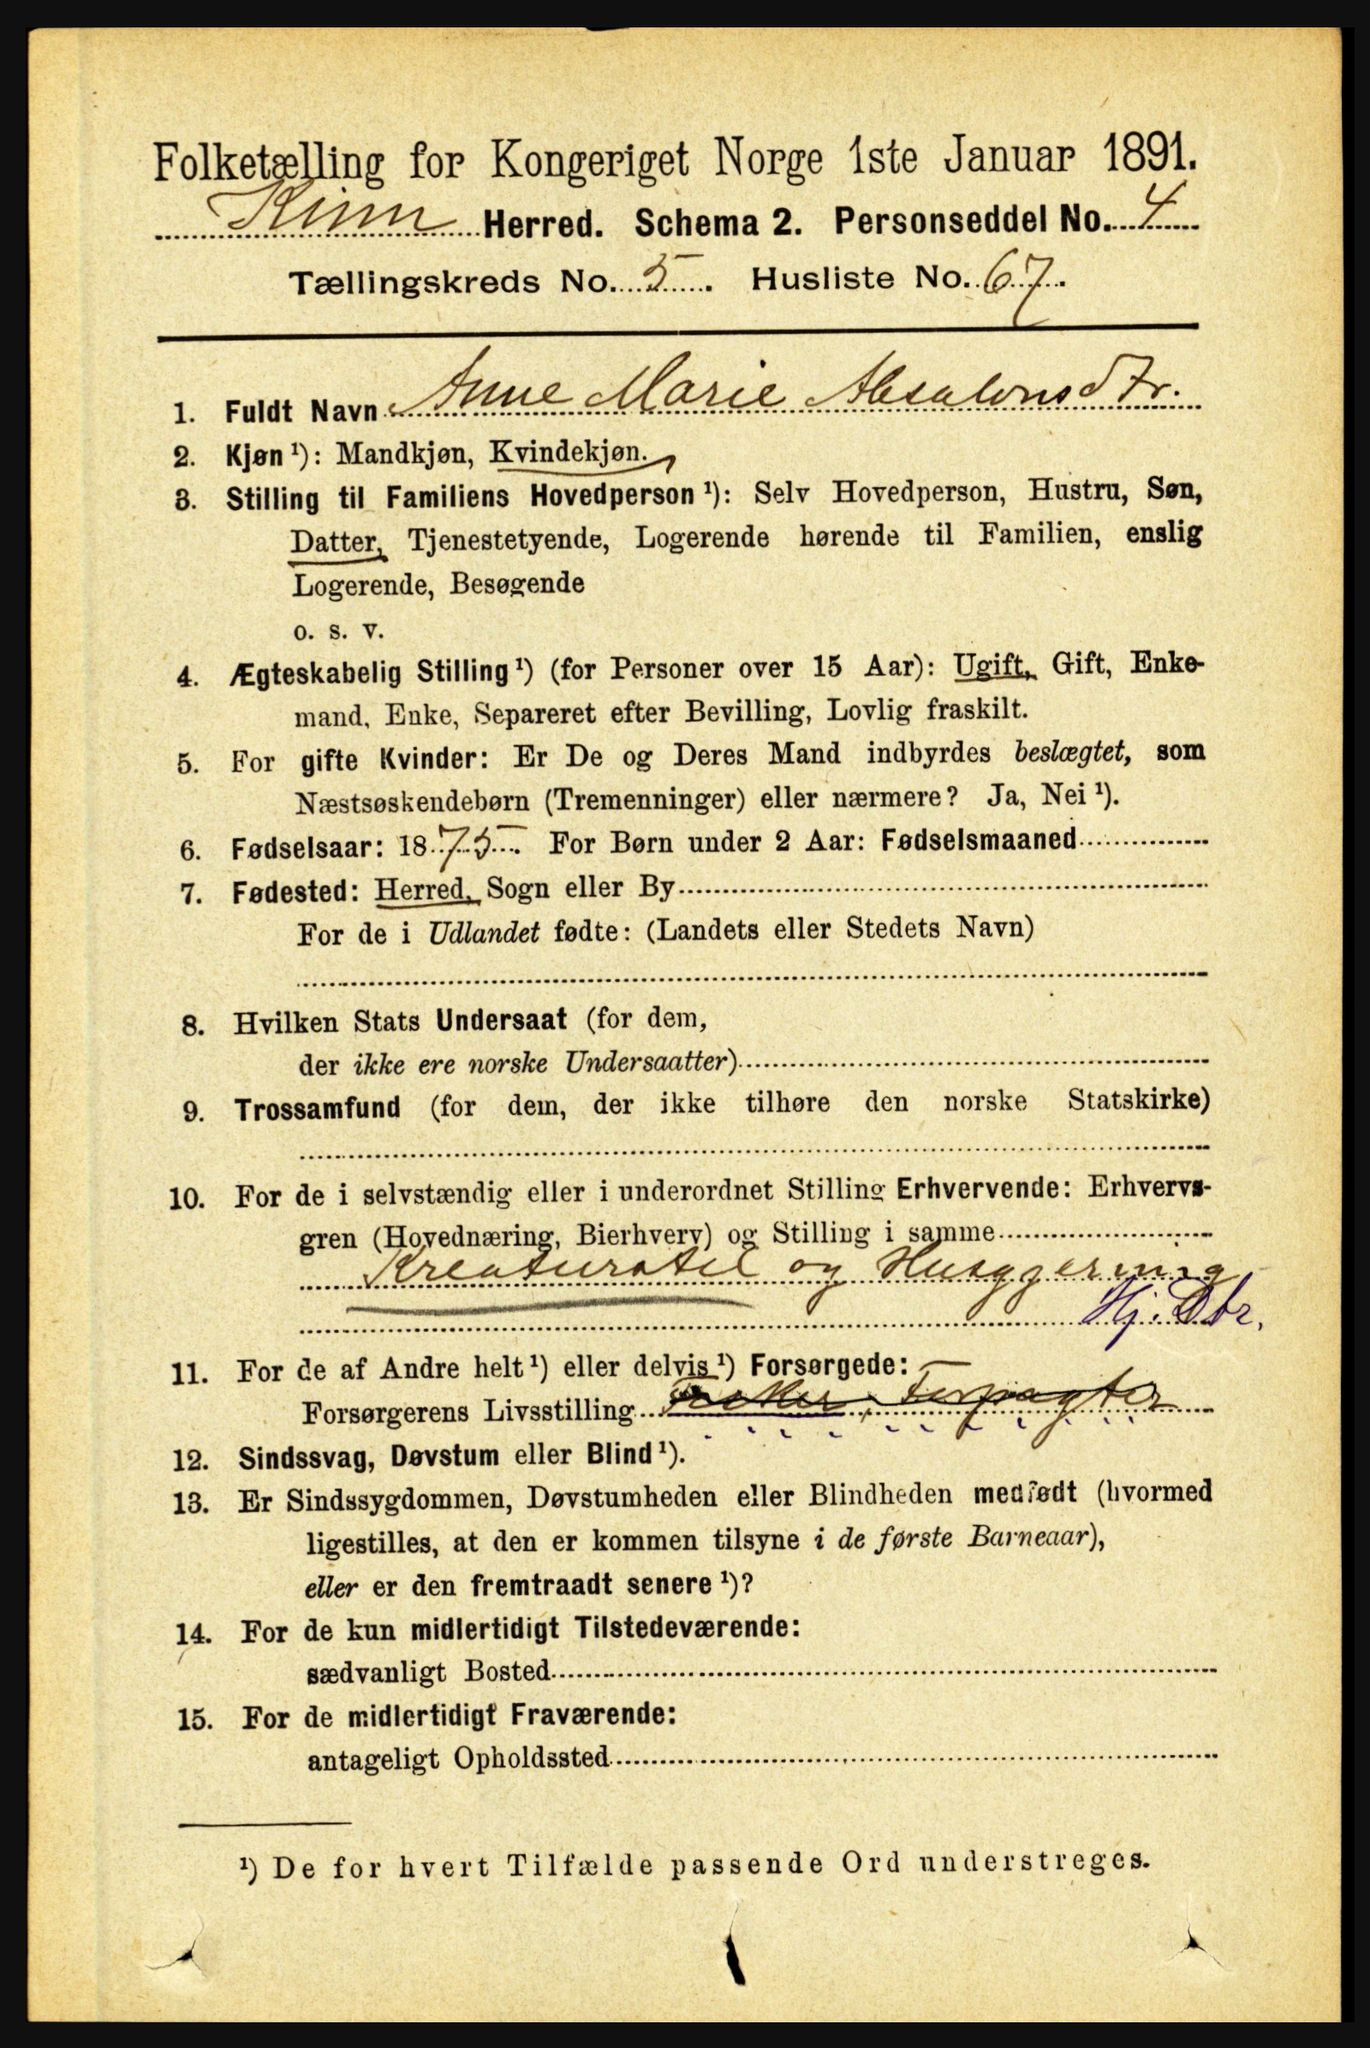 Folketælling for Kongeriget Norge 1ste Januar 1891.
Kinn Herred. Schema 2. Personseddel No. 4
Tællingskreds No. 5. Husliste No. 67.
1. Fuldt Navn Anne Marie Absalonsdtr.
2. Kjøn ¹): Mandkjøn, Kvindekjøn.
3. Stilling til Familiens Hovedperson ¹): Selv Hovedperson, Hustru, Søn,
Datter, Tjenestetyende, Logerende hørende til Familien, enslig
Logerende, Besøgende
o. s. v.
4. Ægteskabelig Stilling ¹) (for Personer over 15 Aar): Ugift, Gift, Enke-
mand, Enke, Separeret efter Bevilling, Lovlig fraskilt.
5. For gifte Kvinder: Er De og Deres Mand indbyrdes beslægtet, som
Næstsøskendebørn (Tremenninger) eller nærmere? Ja, Nei ¹).
6. Fødselsaar: 1875. For Børn under 2 Aar: Fødselsmaaned
7. Fødested: Herred, Sogn eller By
For de i Udlandet fødte: (Landets eller Stedets Navn)
8. Hvilken Stats Undersaat (for dem,
der ikke ere norske Undersaatter)
9. Trossamfund (for dem, der ikke tilhøre den norske Statskirke)
10. For de i selvstændig eller i underordnet Stilling Erhvervende: Erhvervs-
gren (Hovednæring, Bierhverv) og Stilling i samme
Kreaturstel og Husgjerning
Hj. Dtr.
11. For de af Andre helt ¹) eller delvis ¹) Forsørgede:
Forsørgerens Livsstilling Fisker, Forpagter
12. Sindssvag, Døvstum eller Blind ¹).
13. Er Sindssygdommen, Døvstumheden eller Blindheden medfødt (hvormed
ligestilles, at den er kommen tilsyne i de første Barneaar),
eller er den fremtraadt senere ¹)?
14. For de kun midlertidigt Tilstedeværende:
sædvanligt Bosted
15. For de midlertidigt Fraværende:
antageligt Opholdssted
¹) De for hvert Tilfælde passende Ord understreges.